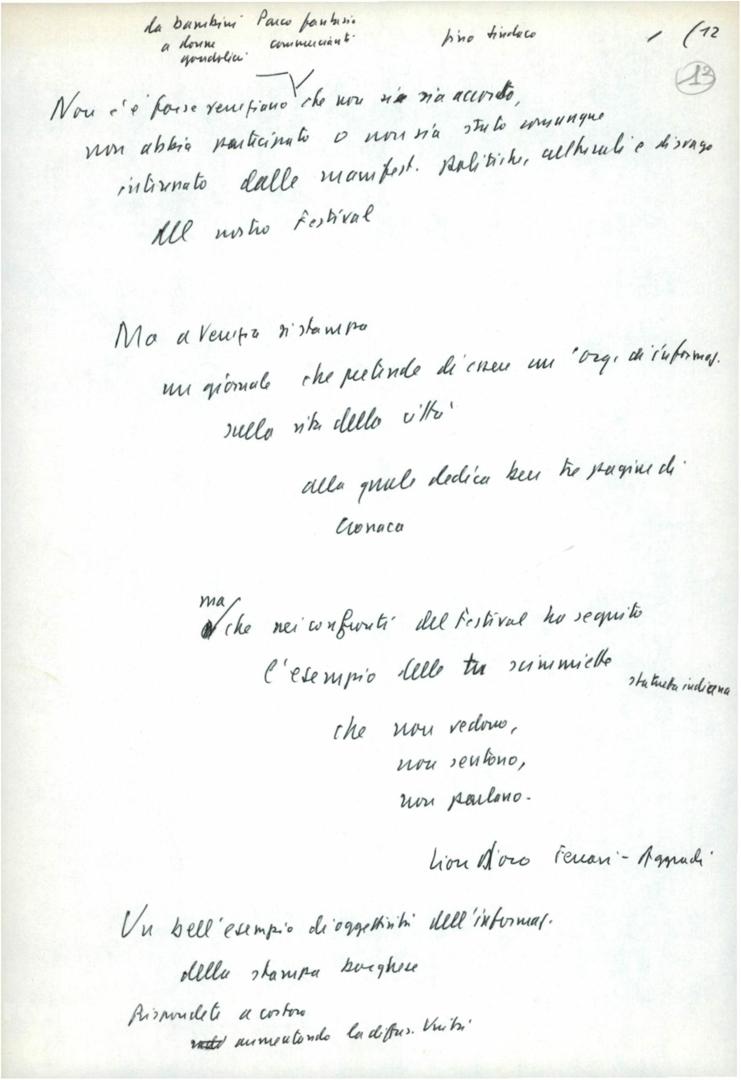 da bambini Parco fantasia
a donne commercianti
gondolieri
fino sindaco
/ (12
13
Non c'è forse veneziano che non si sia accorto,
non abbia partecipato o non sia stato comunque
interessato dalle manifest. politiche, culturali e di svago
del nostro Festival
Ma a Venezia si stampa
un giornale che pretende di essere un org. di informaz.
sulla vita della città
alla quale dedica ben tre pagine di
cronaca
ma
che nei confronti del Festival ha seguito
l'esempio delle tre scimmiette
statuetta indiana
che non vedono,
non sentono,
non parlano.
Leon d'oro Ferrari-Aggradi
Un bell'esempio di oggettività dell'informaz.
della stampa borghese
Rispondete a costoro
aumentando la diffus. Unità